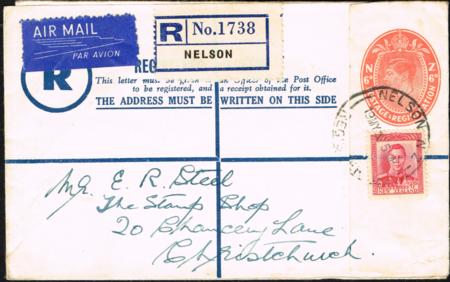 AIR MAIL
PAR AVION
R No. 1738
NELSON
R
REG
This letter must be given to an Officer of the Post Office
to be registered, and a receipt obtained for it.
THE ADDRESS MUST BE WRITTEN ON THIS SIDE
N 6D Z 6D
POSTAGE & REGISTRATION
NELSON
NEW ZEALAND
Mr. E. R. Steel
The Stamp Shop
20 Chancery Lane
Christchurch.